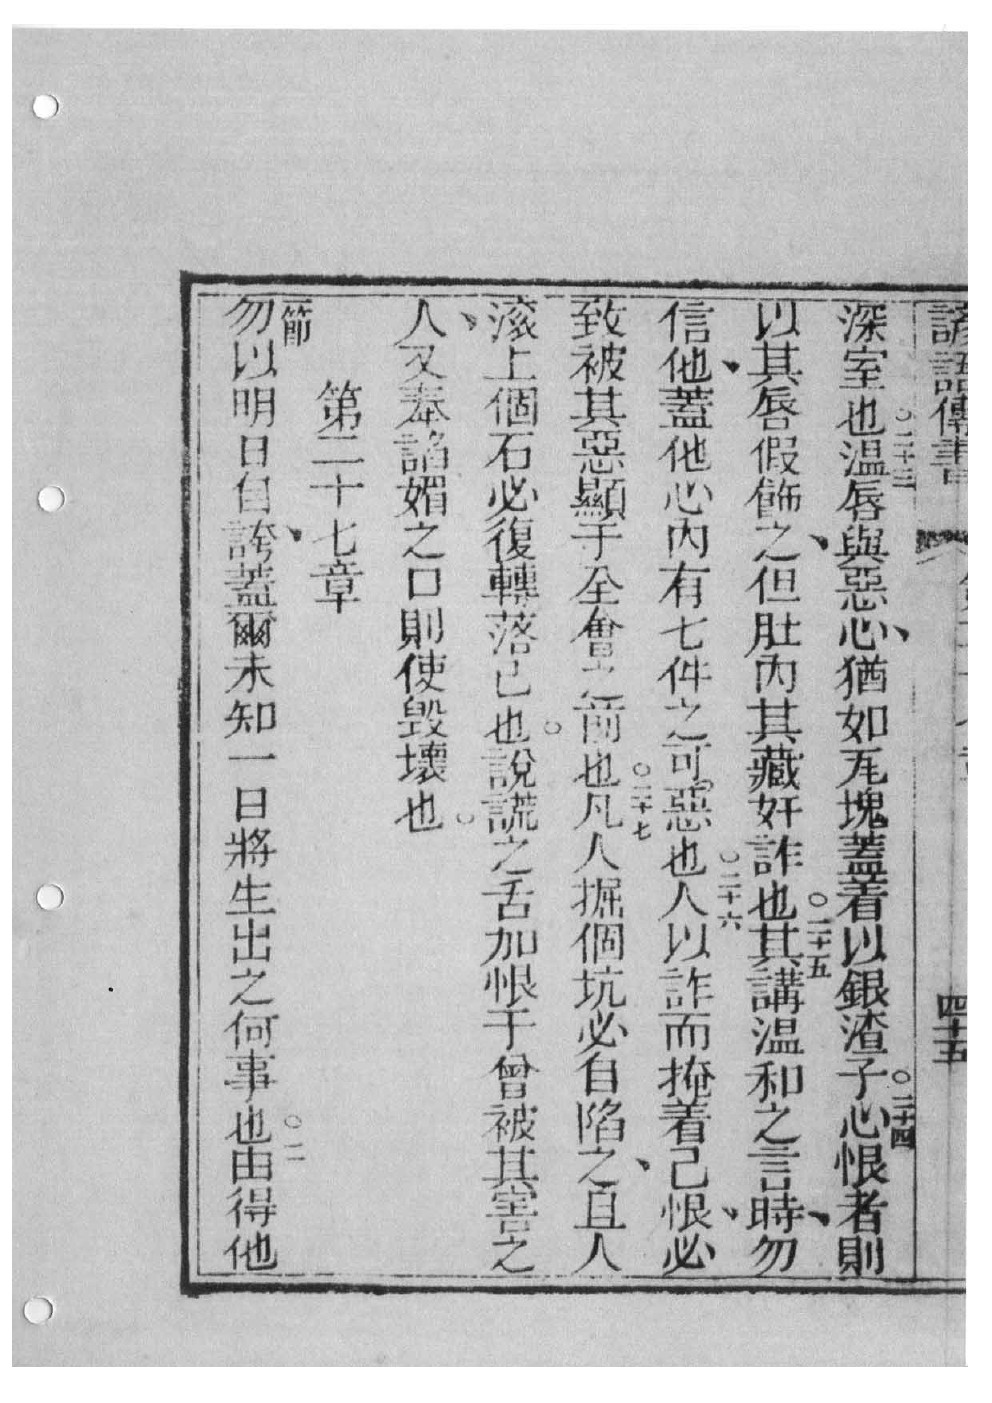 諺語傳書
四十五
深室也○二十三温唇與惡心、猶如瓦塊蓋着以銀渣子○二十四心恨者則
以其唇假飾之、但肚內其藏奸詐也○二十五其講温和之言時、勿
信他、蓋他心內有七件之可惡也○二十六人以詐而掩着己恨、必
致被其惡顯于全會之前也○二十七凡人掘個坑必自陷之、且人
滚上個石必復轉落己也○說謊之舌加恨于曾被其害之
人、又奉諂媚之口則使毀壞也○
第二十七章
一節勿以明日自誇、蓋爾未知一日將生出之何事也○二由得他